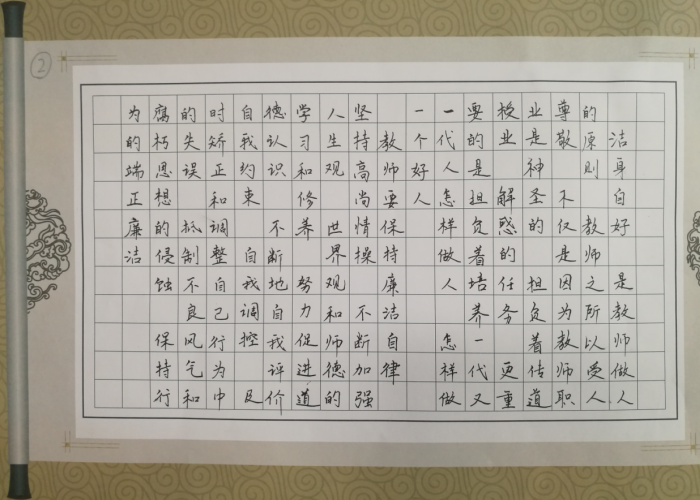 ②
洁身自好 是教师做人
的原则 教师之所以受人
尊敬 不仅是因为教师职
业是神圣的 担负着传道
授业 解惑的任务 更重
要的是担负着培养一代又
一代人 怎样做人 怎样做
一个好人
教师要保持廉洁自律
坚持高尚情操 不断加强
人生观 世界观和师德的
学习和修养 努力促进道
德认识 不断地自我评价
自我约束 自我调控 及
时矫正和调整自己行为中
的失误 抵制不良风气和
腐朽思想的侵蚀 保持行
为的端正廉洁